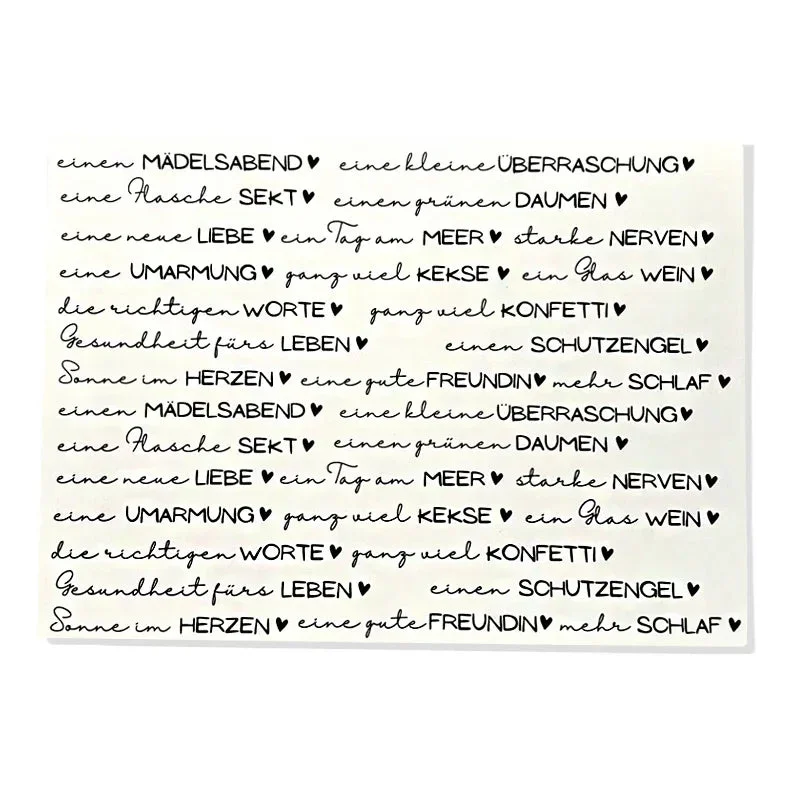 einen MÄDELSABEND♥ eine kleine ÜBERRASCHUNG♥
eine Flasche SEKT♥ einen grünen DAUMEN ♥
eine neue LIEBE ♥ ein Tag am MEER♥ starke NERVEN♥
eine UMARMUNG♥ ganz viel KEKSE ♥ ein Glas WEIN ♥
die richtigen WORTE♥ ganz viel KONFETTI♥
Gesundheit fürs LEBEN♥ einen SCHUTZENGEL♥
Sonne im HERZEN♥ eine gute FREUNDIN♥ mehr SCHLAF ♥
einen MÄDELSABEND♥ eine kleine ÜBERRASCHUNG♥
eine Flasche SEKT♥ einen grünen DAUMEN ♥
eine neue LIEBE ♥ ein Tag am MEER♥ starke NERVEN♥
eine UMARMUNG♥ ganz viel KEKSE ♥ ein Glas WEIN♥
die richtigen WORTE♥ ganz viel KONFETTI♥
Gesundheit fürs LEBEN♥ einen SCHUTZENGEL♥
Sonne im HERZEN♥ eine gute FREUNDIN♥ mehr SCHLAF ♥